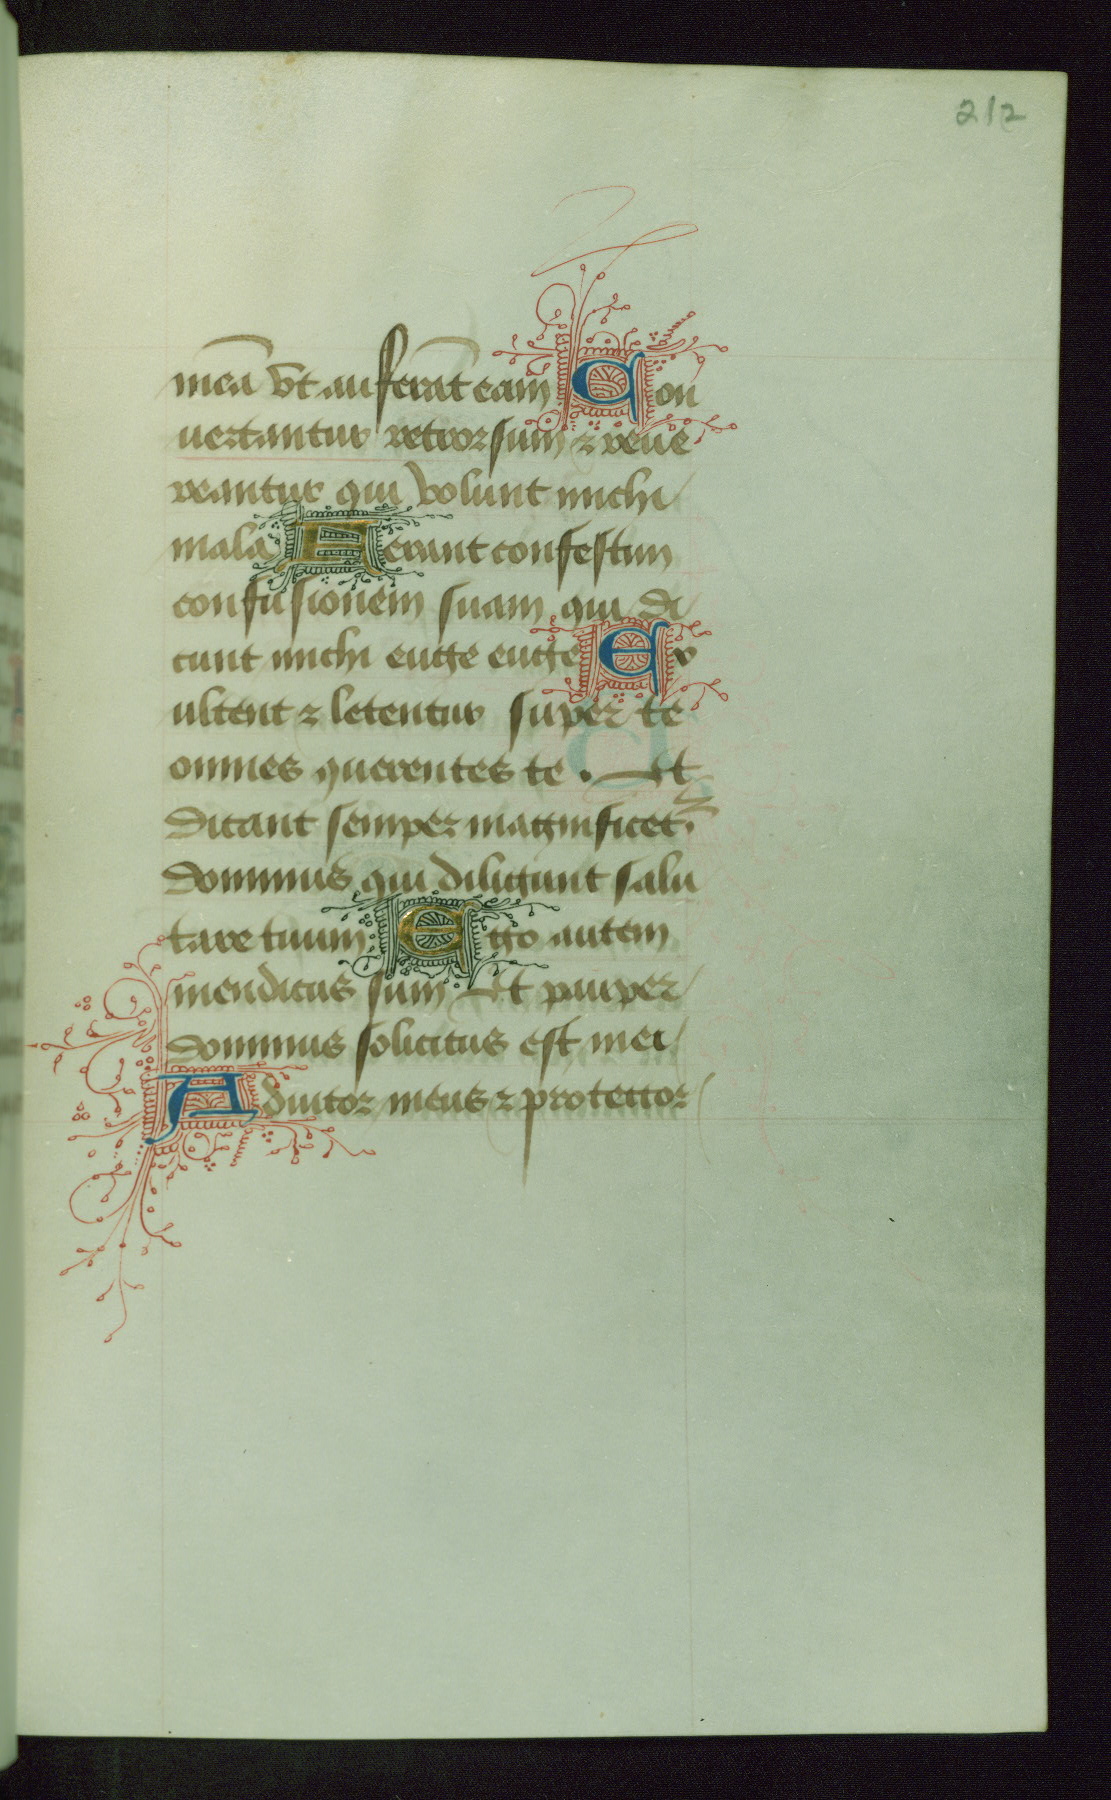 212
meā Vt auferāt eam Con
uertantur retrorsum ⁊ reue
reantur qui Volunt michi
mala Ferant confestim
confusionem suam qui di
cunt michi euge euge Ex
ultent ⁊ letentur super te
omnes querentes te. Et
dicant semper magnificet᷑
dominus qui diligunt salu
tare tuum Ego autem
mendicus sum Et pauper
dominus solicitus est mei
Adiutor meus ⁊ protector